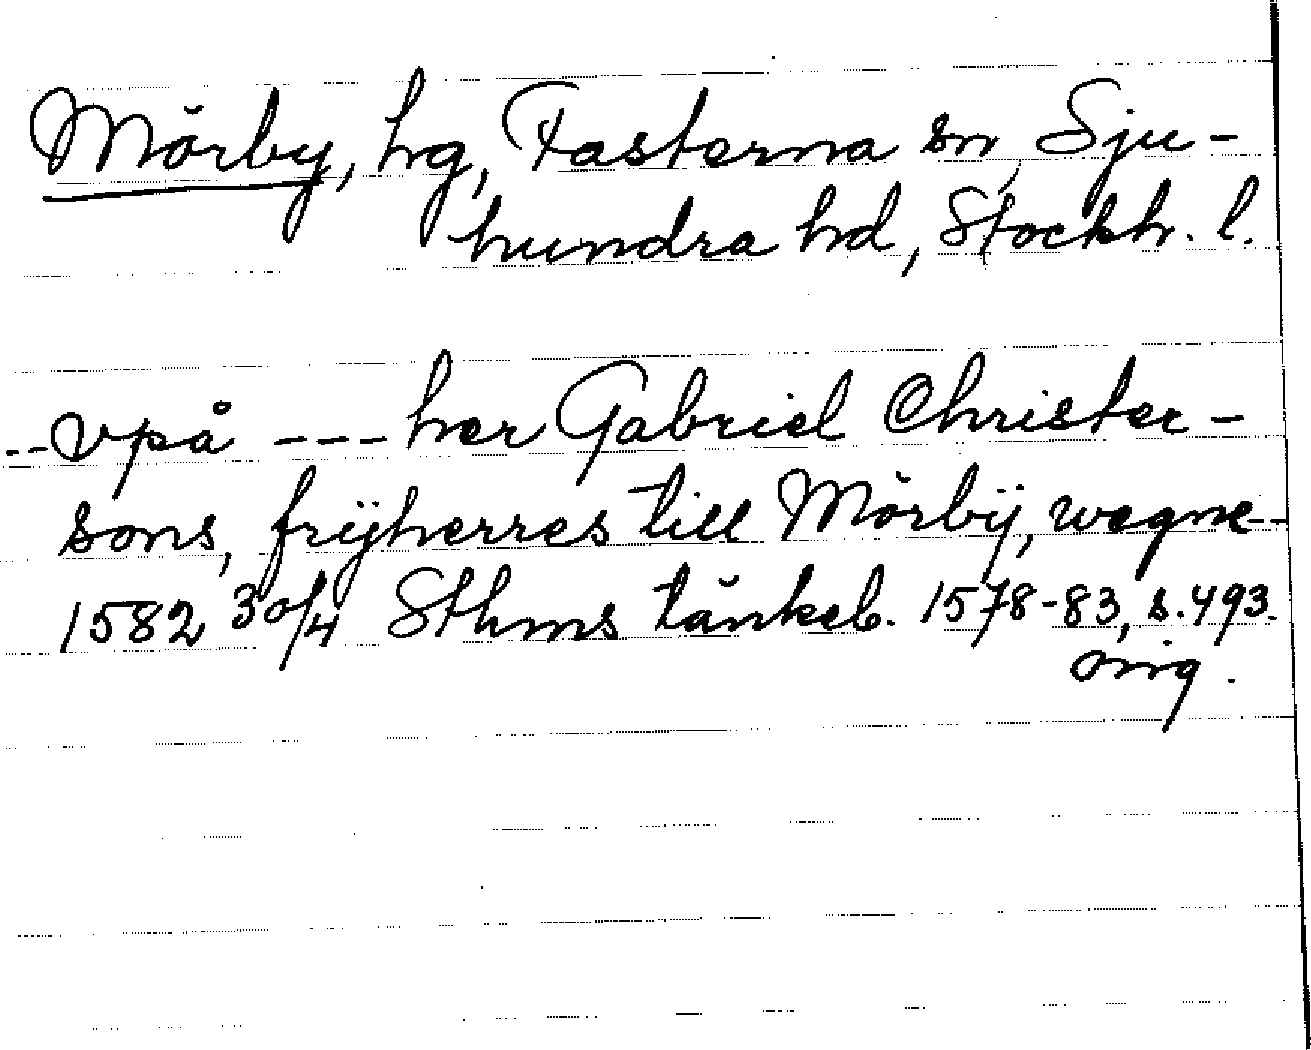 Mörby, hg, Fasterna sn, Sju-
hundra hd, Stockh. l.
--vpå --- her Gabriel Christer-
sons, frijherres till Mörbij, wegne--
1582 30/4 Sthms tänkeb. 1578-83, s. 493.
orig.